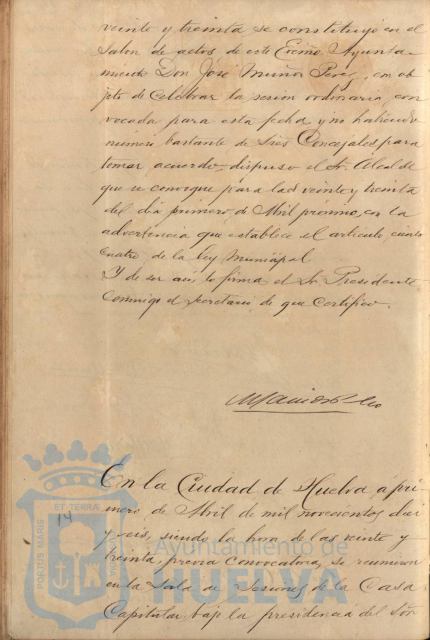 veinte y treinta se constituyó en el
Salon de actos de este Excmo. Ayunta-
miento Don José Muñoz Perez, con ob-
jeto de Celebrar la sesion ordinaria con
vocada para esta fecha y no habiendo
número bastante de Sres Concejales para
tomar acuerdo, dispuso el Sr. Alcalde
que se convoque para las veinte y treinta
del dia primero de Abril próximo, con la
advertencia que establece el artículo ciento
cuatro de la ley Municipal.
Y de ser asi lo firma el Sr. Presidente
conmigo el Secretario de que certifico.
En la Ciudad de Huelva, á pri-
mero de Abril de mil novecientos diez
y seis, siendo la hora de las veinte y
treinta, previa convocatoria, se reunieron
en la Sala de Sesiones de la Casa
Capitular bajo la presidencia del Señ
14
PORTUS MARIS
ET TERRÆ
Ayuntamiento de
HUELVA